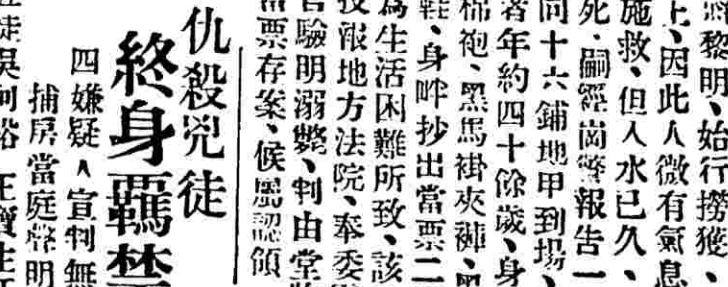 黎明、始行撈獲、
上、因此人微有氣息
施救、但入水已久、
死、嗣經崗警報告一
同十六鋪地甲到場、
者年約四十餘歲、身
棉袍、黑馬褂夾褲、黑
鞋、身畔抄出當票二
為生活困難所致、該
投報地方法院、奉委
官驗明溺斃、判由堂
當票存案、候屬認領
仇殺兇徒
終身羈禁
四嫌疑人宣判無
捕房當庭聲明
徒吳阿裕 王寶生